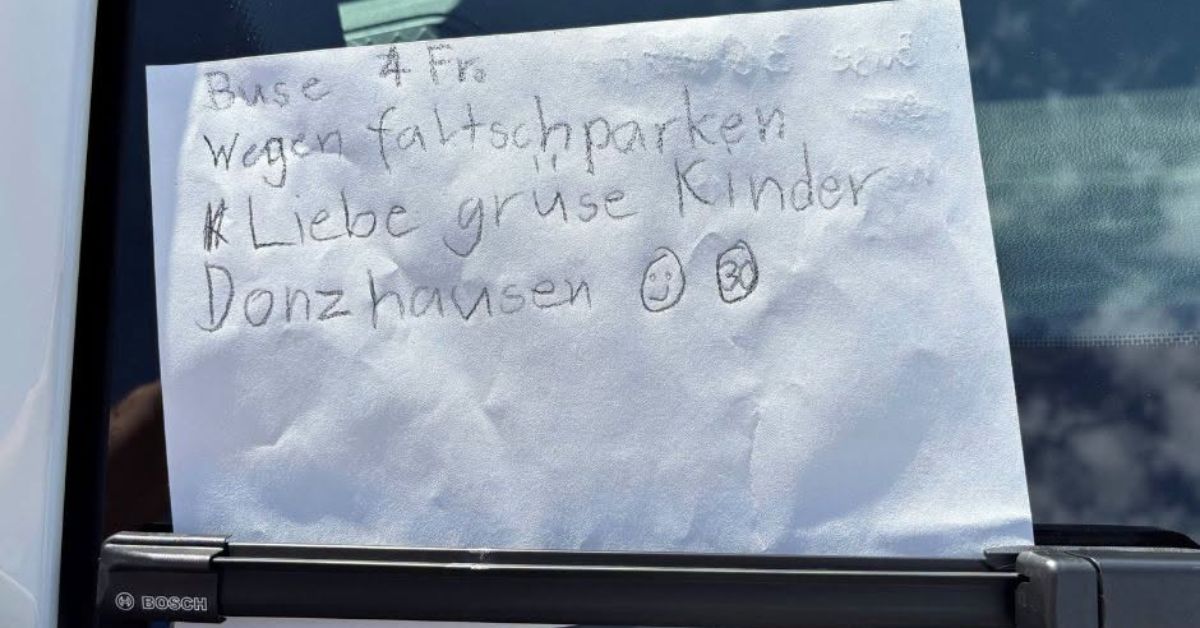 Buse 4 Fr.
Wegen faltschparken
Liebe grüse Kinder
Donzhausen ☺ 30
BOSCH